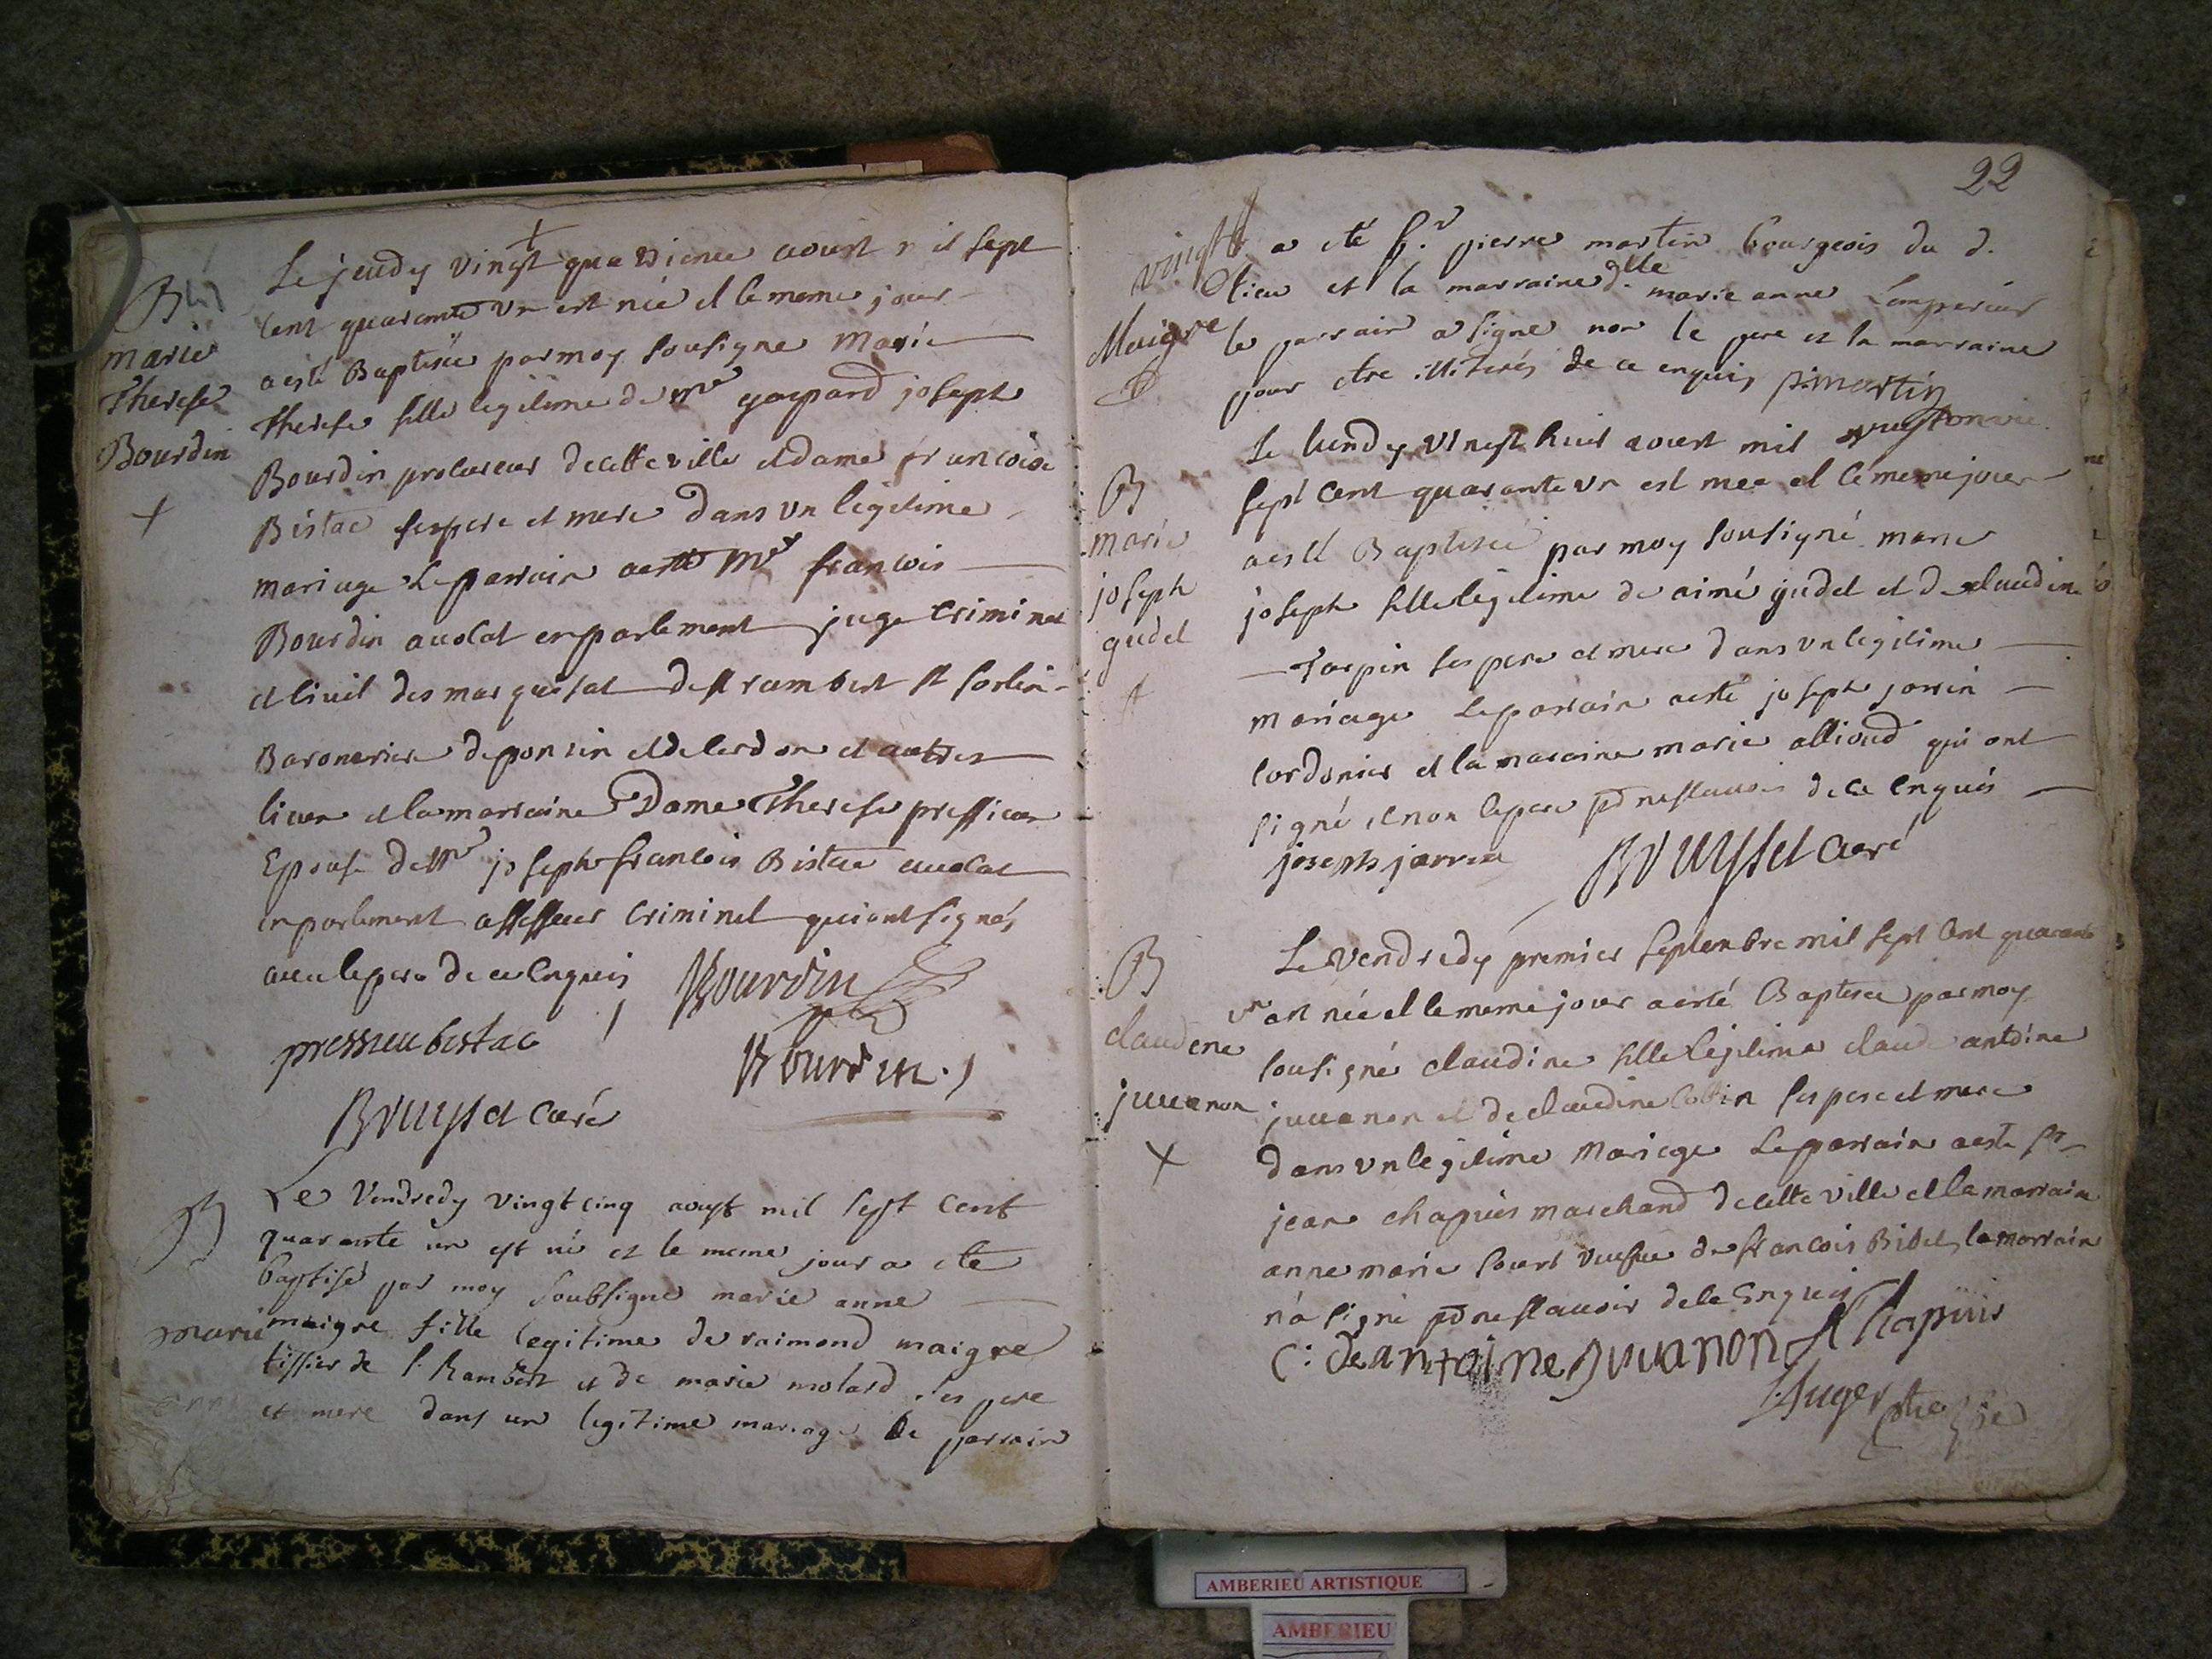 B
marie
Therese
Bourdin
Le jeudy vingt quatrieme aoust mil sept
cent quarante vn est née et le meme jour
aesté Baptisée par moy sousigne Marie
Therese fille legitime de mr gaspard joseph
Bourdin procureur de cette ville et dame francoise
Bistac ses pere et mere dans vn legitime
mariage Le parrain aesté Mr francois
Bourdin auocat en parlement juge criminel
et ciuil des marquisat de st rambert st sorlin
Baroneries de poncin et de cerdon et autres
lieux et la marraine Dame Therese pressieu
Epouse de Mr joseph francois Bistac auocat
en parlement assesseur criminel qui ont signés
auec le pere de ce Enquis Bourdin
pressieu bistac Bourdin
Bruyset curé
B
marie
anne
Le Vendredy vingt cinq aoust mil sept cent
quarante un est né et le meme jour a eté
baptisé par moy soubsigné marie anne
maigre fille legitime de raimond maigre
tissier de st Rambert et de marie molard ses pere
et mere dans un legitime mariage le parrain
22
Maigre
a eté sr pierre martin bourgeois du d.
lieu et la marraine dlle marie anne Lempereur
le parrain a signé non le pere et la marraine
pour etre illiterés de ce enquis p. martin
B
marie
joseph
gudet
Le lundy vingt huit aoust mil
sept cent quarante vn est nee et le meme jour
aesté Baptisée par moy sousigné marie
joseph fille legitime de aimé gudet et de claudine
Tarpin ses pere et mere dans vn legitime
mariage Le parrain aesté joseph jarrin
cordonier et la maraine marie allioud qui ont
signé et non le pere pr ne scauoir de ce enquis
joseph jarrin Bruyset curé
B
claudine
juuanon
Le Vendredy premier septembre mil sept cent quarante
vn est née et le meme jour aesté Baptisee par moy
sousigné claudine fille legitime claude antoine
juuanon et de claudine Collin ses pere et mere
dans vn legitime Mariage Le parrain aesté sr
jean chapuis marchand de cette ville et la marraine
anne marie court veufue de francois Bidet la marraine
n'a signé pr ne scauoir de ce Enquis
C: de antoine Juuanon Chapuis
Auger
AMBERIEU ARTISTIQUE
AMBERIEU